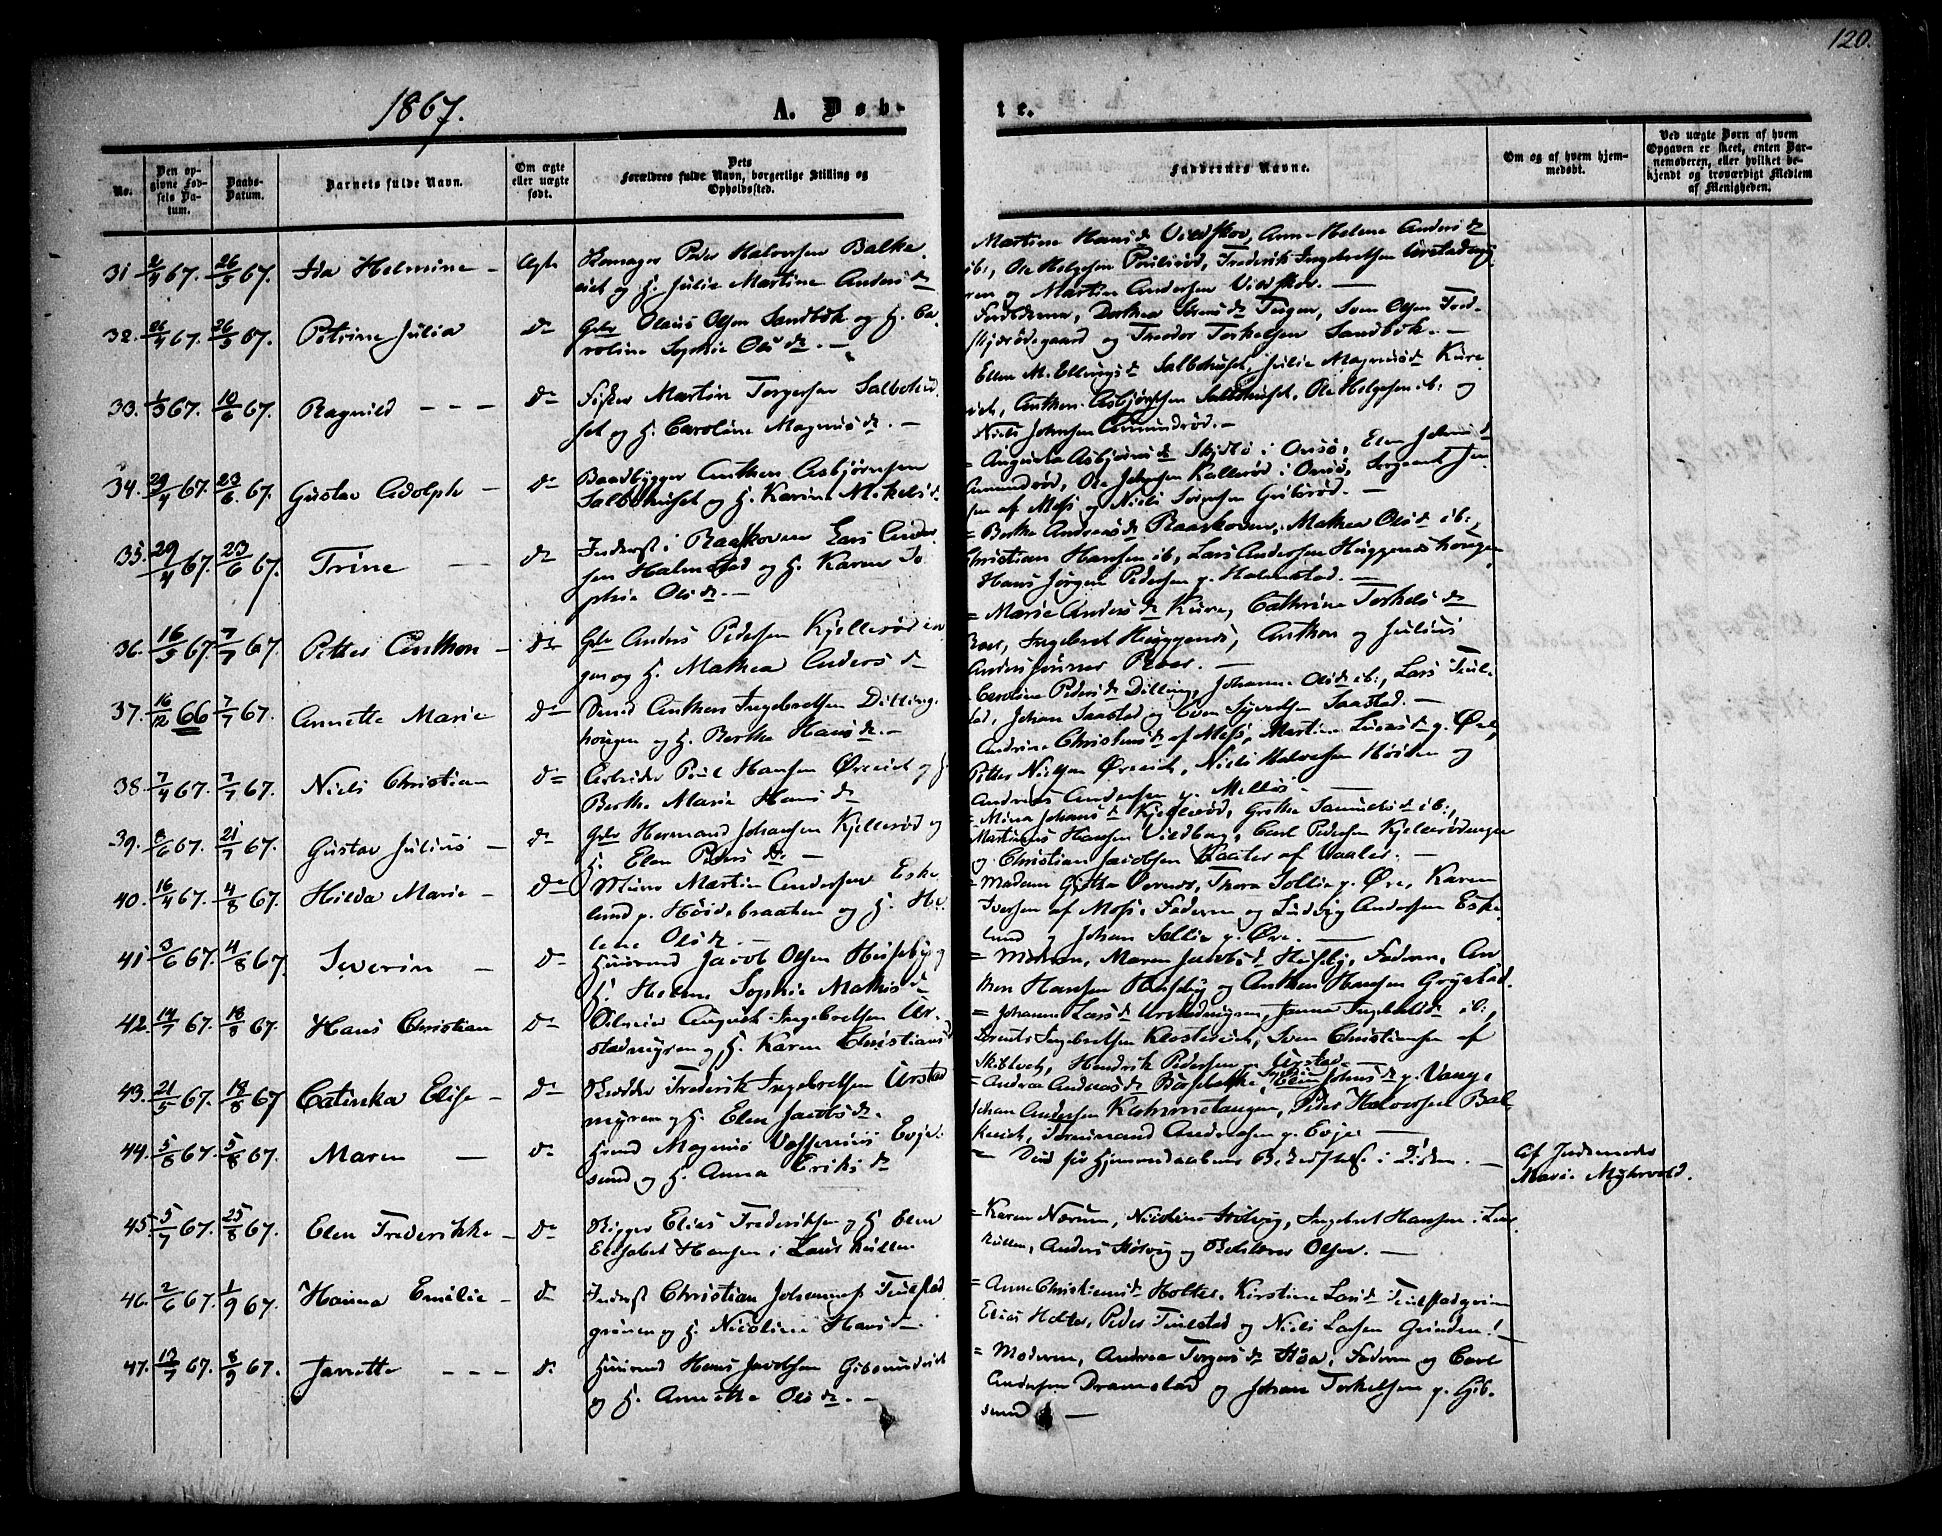 120.
1867.
A. Døb-
te.
No.
Den opgivne Fødsels Datum.
Daabs-Datum.
Barnets fulde Navn.
Om ægte eller uægte født.
Dets Forældres fulde Navn, borgerlige Stilling og Opholdssted.
Faddernes Navne.
Om og af hvem hjemmedøbt.
Ved uægte Børn af hvem Opgaven er skeet, enten Barnemoderen, eller hvilket bekjendt og troværdigt Medlem af Menigheden.
31. 2/4 67. 26/5 67. Ida Helmine - Ægte Skomager Peder Halvorsen Balke
vich og H. Julie Martine Andersd.
Martine Hansd. Vildskov, Anne Helene Andersd.
ib:, Ole Helgesen Poulsrød, Frederik Ingebretsen Urstadmy
ren og Martin Andersen Vildskov. -
32. 26/4 67. 26/5 67. Petrine Julia do Gbr Olaus Olsen Sandbæk og H. Ca
roline Sophie Olsd. -
Forældrene, Dorthea Tinger, Sven Olsen Fred
og Theodor Torkelsen Sandbæk. -
33. 1/3 67. 10/6 67. Ragnild - - - do Fisker Martin Torgersen Salbohu
set og H. Caroline Magnusd. -
Ellen M. Ellingsd. Salbohuset, Julie Magnusd. Kure
vich, Anthon Asbjørnsen Salbohuset, Ole Helgesen ib: og
Niels Johnsen Amundrød. -
34. 29/4 67. 23/6 67. Gustav Adolph - do Baadbygger Anthon Asbjørnsen
Salbohuset og H. Karine Mikelsd.
= Augusta Asbjørnsd. i Onsø, Elen
Amundrød, Ole Jakobsen Kallerød i Onsø, Sergeant Jen
sen af Moss og Niels Gribsrød. -
35. 29/4 67. 23/6 67. Trine - do Inderst i Raaskoven Lars Ander
sen Halmstad og H. Karen So
phie Olsd. -
= Berthe Andersd. Raaskoven, Mathea Olsd. ib:,
Christian Hansen ib, Lars Andersen Huggenes
Hans Jørgen Pedersen p. Halmstad. -
36. 16/5 67. 7/7 67. Petter Anthon - do Gbr Anders Pedersen Kjellerød en
gen og H. Mathea Andersd.
= Marie Andersd. Kure, Cathrine Torkelsd.
Roer, Ingebret Huggenes, Anthon og Julius
Roer. -
37. 16/12 66 7/7 67. Annette Marie do Anthon Ingebretsen Dilling
hougen og H. Berthe Hansd. -
Caroline Pedersd. Dilling, Johanne Olsd. ib:, Lars
Johan Saastad og Even Syvertsen Saastad. -
38. 7/4 67. 7/7 67. Niels Christian do Arbeider Poul Hansen Ørevich og H
Berthe Marie Hansd.
Andrine Christensd. af Moss, Martine Lucasd. p. Øre,
Petter Nielsen Ørevich, Niels Halvorsen Høiden og
Andreas Andersen p. Melløs -
39. 8/6 67. 21/7 67. Gustav Julius - do Gbr Hermand Johansen Kjellerød og
H. Elen Pedersd. -
= Mina Johansd. Kjellerød, Grethe Samuelsd. ib:,
Martinus Hansen Vildberg, Carl Pedersen Kjellerødengen
og Christian Jacobsen Kaates af Vaaler. -
40. 16/4 67. 4/8 67. Hilda Marie - do Murer Martin Andersen Eske
lund p. Høidebraaten og H. He
lene Olsd. -
= Madam Githa Thora Sollie p. Øre, Karen
Iversen af Moss, Faderen og Ludvig Andersen Eske
lund og Johan Sollie p. Øre. -
41 3/6 67. 4/8 67. Severin - do Huusmd Jacob Olsen Huseby og
H. Helene Sophie Mathisd.
= Moderen, Maren Jacobsd. Huseby, Faderen, An
thon Hansen Huseby og Anthon Hansen Grystad.
42. 14/7 67. 18/8 67. Hans Christian do August Ingebretsen Ur
stadmyren og H. Karen Christiansd.
= Johanne Larsd. Urstadmyren, Janna Ingebretsd. ib:,
Lorents Ingebretsen Klostervich, Sven Christiansen af
Skibtvet, Hendrik Pedersen p. Urstad -
43. 21/5 67. 18/8 67 Catinka Elise - do Rødder Frederik Ingebretsen Urstad
myren og H. Elen Jacobsd.
= Andrea Andreasd. Sophie Elen Johnsd. p. Vang,
Johan Andersen Peder Halvorsen Bal
kevich, Ferdinand Andersen p. Evje -
44. 5/8 67. 5/8 67. Maren - do Magnus Evje
sund og H. Anna Eriksd.
= Død før Hjemmedaabens Bekræftelse i Kirken. -
Af Jordemoder
Marie Myhrvold.
45. 5/7 67. 25/8 67. Elen Frederikke - do Rigger Elias Frederiksen og H. Elen
Elisabet Hansen i Laurkullen
= Karen Nærum, Nicoline Solvig, Ingebret Hansen i Laur
kullen, Anders Solvig og Olsen. -
46. 2/6 67. 1/9 67. Hanna Emilie - do Inderst Christian Johannes
og H. Nicoline Hansd.
= Anne Christiansd. Holter, Kirstine Larsd.
Elias Holter, Peder og Niels Larsen Grinden. -
47. 13/7 67. 8/9 67. Janette - - - do Huusmd Hans Jacobsen Gibsundvich
og H. Annette Olsd. -
= Moderen, Andrea Torgersd. Faderen og Carl
Andersen Dramstad og Johan Torkelsen p. Gib
sund -